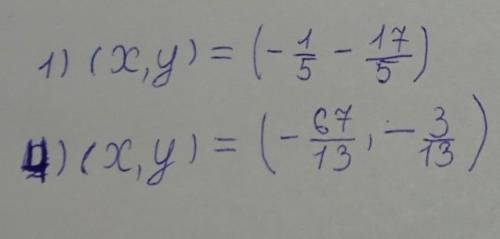 1) (x, y) = (-1/5 - 17/5)
4) (x, y) = (-67/13, -3/13)